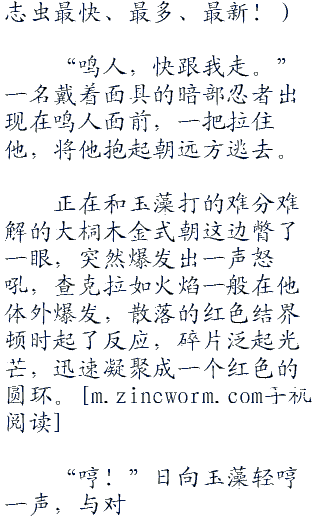 志虫最快、最多、最新！）
“鸣人，快跟我走。”
一名戴着面具的暗部忍者出
现在鸣人面前，一把拉住
他，将他抱起朝远方逃去。
正在和玉藻打的难分难
解的大桐木金式朝这边瞥了
一眼，突然爆发出一声怒
吼，查克拉如火焰一般在他
体外爆发，散落的红色结界
顿时起了反应，碎片泛起光
芒，迅速凝聚成一个红色的
圆环。[m.zincworm.com手机
阅读]
“哼！”日向玉藻轻哼
一声，与对